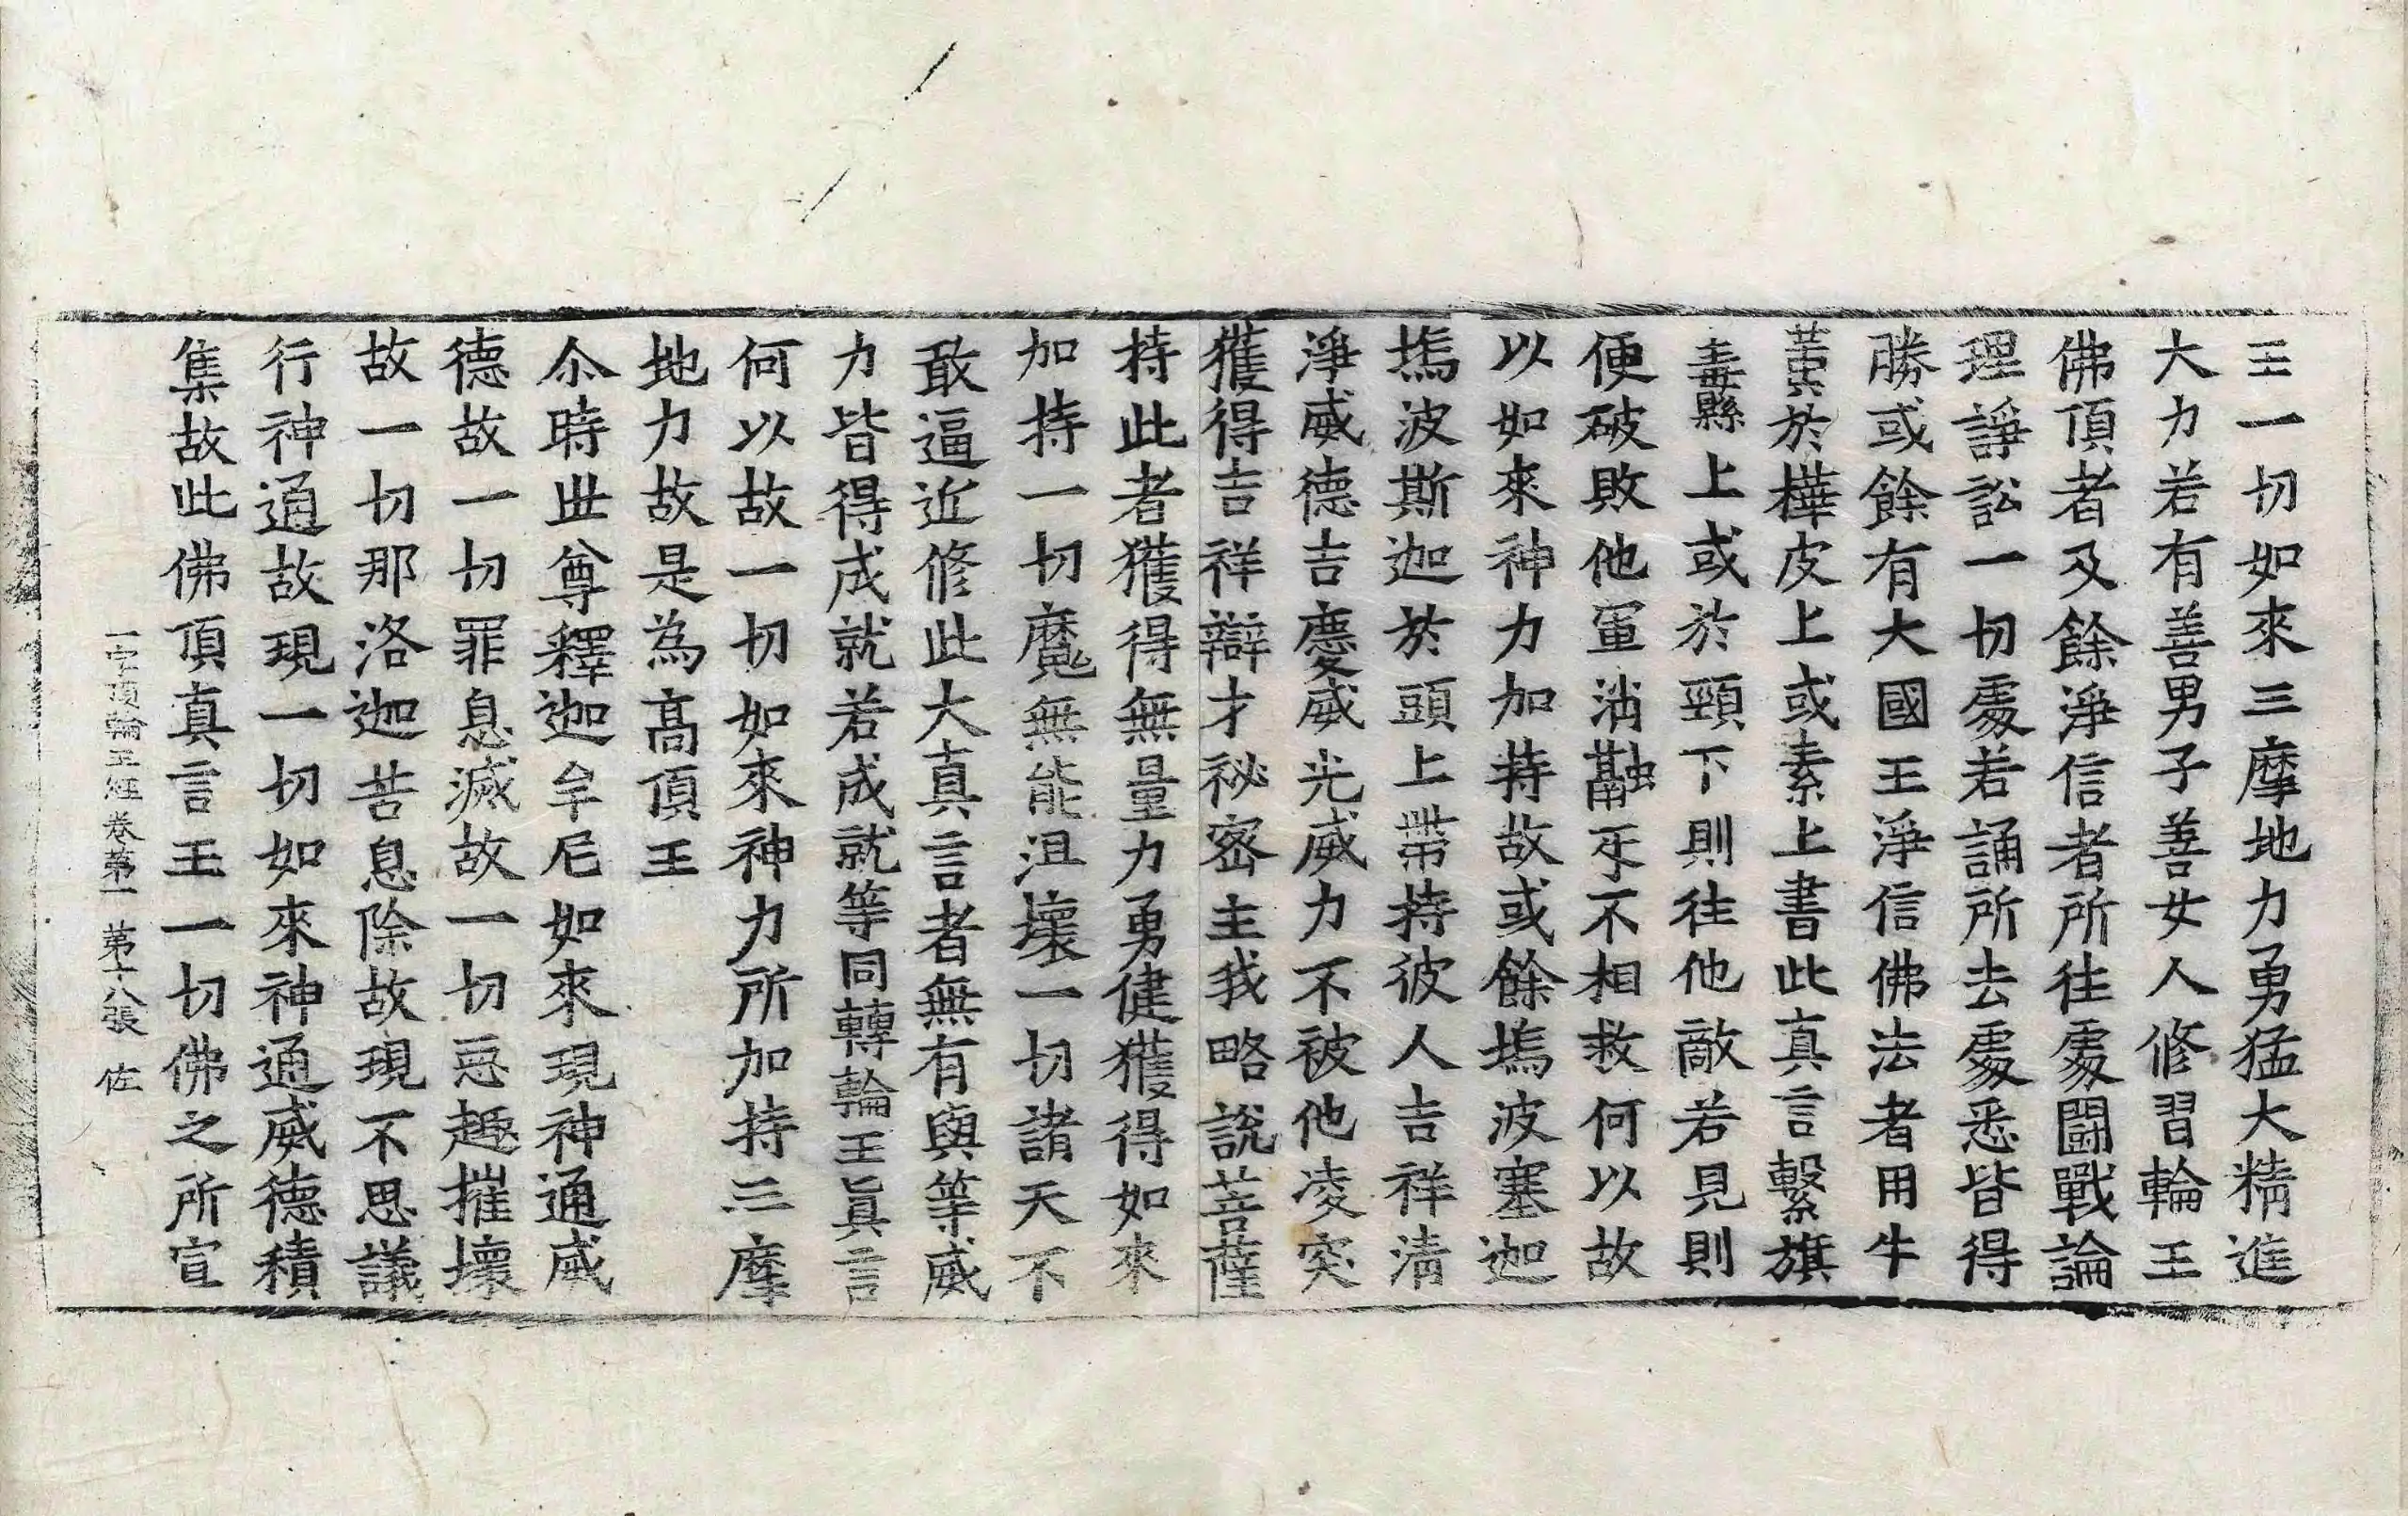 王一切如來三摩地力勇猛大精進
大力若有善男子善女人修習輪王
佛頂者及餘淨信者所往處鬪戰論
理諍訟一切處若誦所去處悉皆得
勝或餘有大國王淨信佛法者用牛
黃於樺皮上或素上書此真言繫旗
纛縣上或於頸下則往他敵若見則
便破敗他軍消融牙不相救何以故
以如來神力加持故或餘塢波塞迦
塢波斯迦於頭上帶持彼人吉祥清
淨威德吉慶威光威力不被他凌突
獲得吉祥辯才祕密主我略說菩薩
持此者獲得無量力勇健獲得如來
加持一切魔無能沮壞一切諸天不
敢逼近修此大真言者無有與等威
力皆得成就若成就等同轉輪王眞言
何以故一切如來神力所加持三摩
地力故是為高頂王
尒時世尊釋迦牟尼如來現神通威
德故一切罪息滅故一切惡趣摧壞
故一切那洛迦苦息除故現不思議
行神通故現一切如來神通威德積
集故此佛頂真言王一切佛之所宣
一字頂輪王經卷第一 第十八張 佐